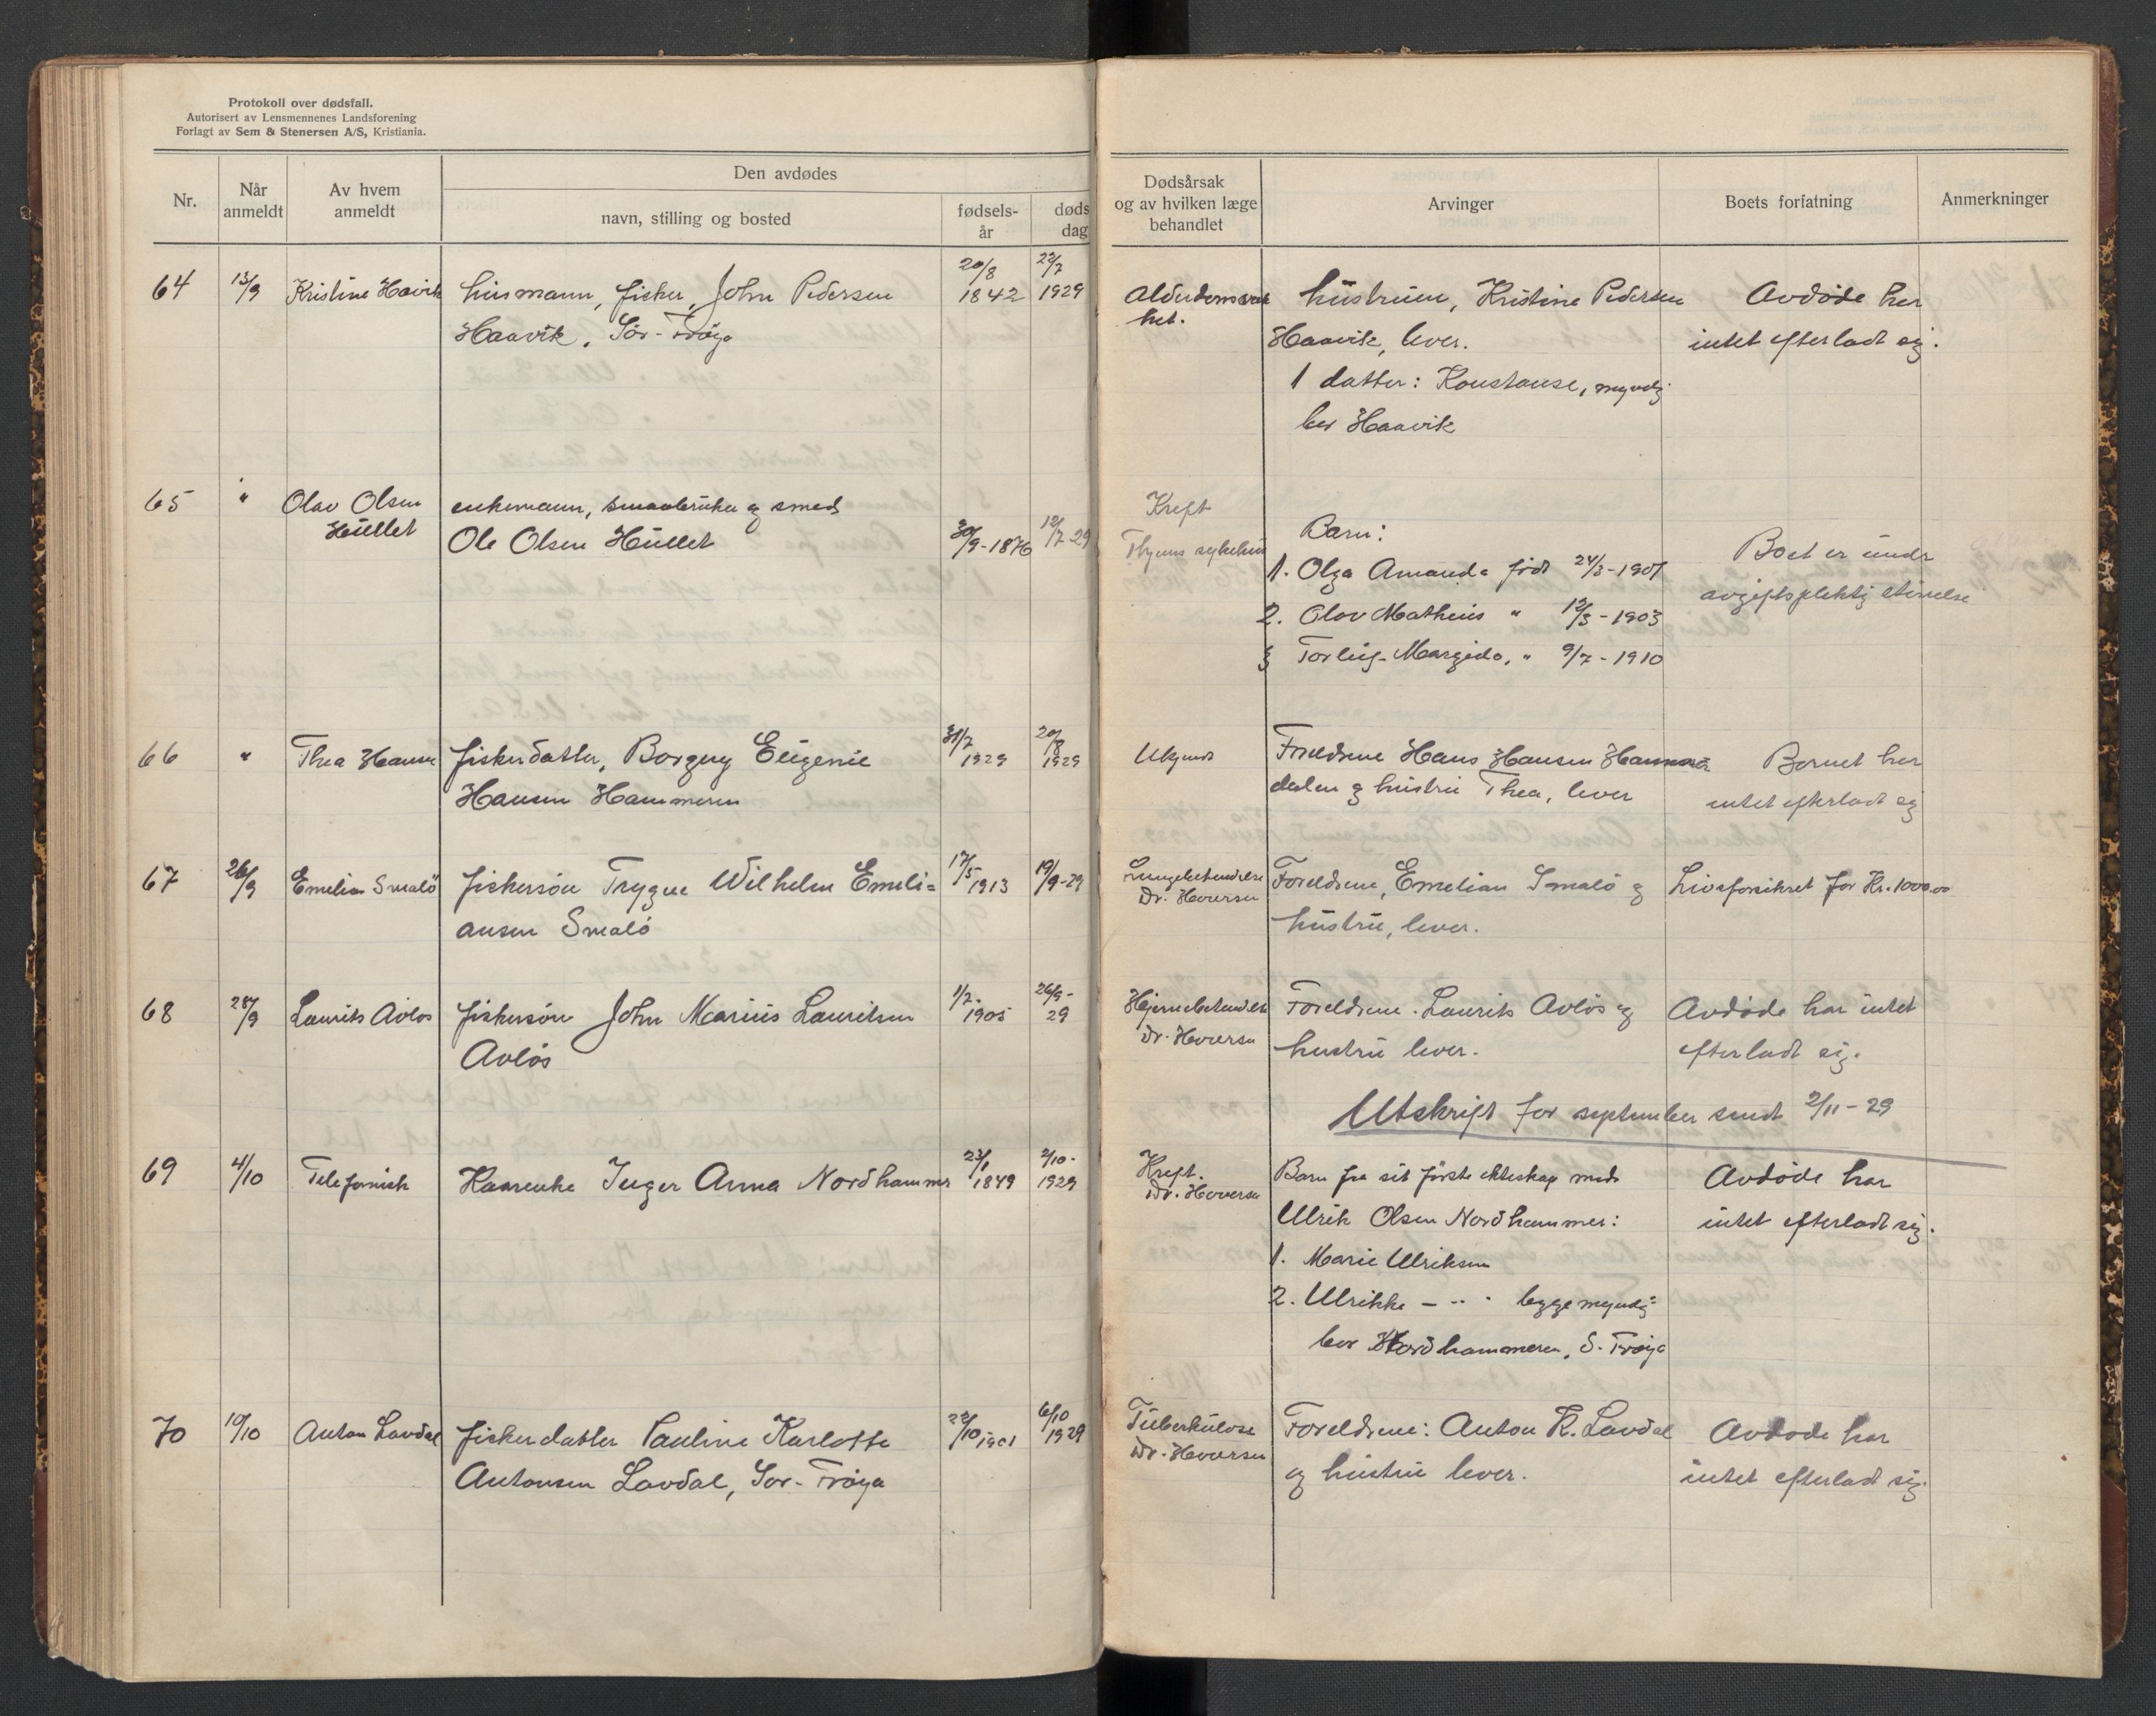 Protokoll over dødsfall.
Autorisert av Lensmennenes Landsforening
Forlagt av Sem & Stenersen A/S, Kristiania.
Nr.
Når anmeldt
Av hvem anmeldt
Den avdødes
navn, stilling og bosted
fødselsår
døds dag
Dødsårsak og av hvilken læge behandlet
Arvinger
Boets forfatning
Anmerkninger
64 13/9 Kristine Haavik husmann, fisker, John Pedersen 20/8 1842 22/7 1929
Haavik, Sør-Frøya
Alderdomssvak
het.
hustruen, Kristine Pedersen
Haavik, lever.
1 datter: Konstanse, myndig
bor Haavik
Avdøde har
intet efterladt sig.
65 " Olav Olsen enkemann, smaabruker og smed
Hullet Ole Olsen Hullet 30/9-1876 12/7-29
Kreft
sykehus
Barn:
1. Olga Amanda født 24/3-1901
2. Olav Matheus " 12/3-1903
3 Margido, " 9/7-1910
Boet er under
avgiftspliktig
66 " Thea Hansen fiskerdatter, Borgny Eugenie 31/7 1929 20/8 1929
Hansen Hammeren
Ukjend
Foreldrene Hans Hansen Hammer
dalen og hustru Thea, lever
Barnet har
intet efterladt sig
67 26/9 Emelian Smalö fiskersön Trygve Wilhelm Emeli= 17/5 1913 19/9-29
ansen Smalö
Lungebetendelse
Dr. Heversen
Foreldrene, Emelian Smalö og
hustru, lever.
Livsforsikret for Kr. 1000.00
68 28/9 Laurits Avløs fiskersön John Marius Lauritsen 1/2. 1905 26/9-29
Avløs
Hjernebetendelse
Dr. Heversen
Foreldrene. Laurits Avløs og
hustru lever.
Avdøde har intet
efterladt sig.
Utskrift for september sendt 2/11-29
69 4/10 Telefonisk Inger Anna Nordhammer 23/1 1849 2/10-1929
Kreft.
Dr. Heversen
Barn fra sit første ekteskap med
Ulrik Olsen Nordhammer:
1. Marie Ulriksen
2. Ulrikke - " - begge myndig
bor Nordhammeren, S. Frøya
Avdøde har
intet efterladt sig.
70 10/10 Anton Lavdal fiskerdatter Pauline Karlotte 22/10 1901 6/10 1929
Antonsen Lavdal, Sør-Frøya
Tuberkulose
Dr. Heversen
Foreldrene: Anton K. Lavdal
og hustru lever.
Avdøde har
intet efterladt sig.